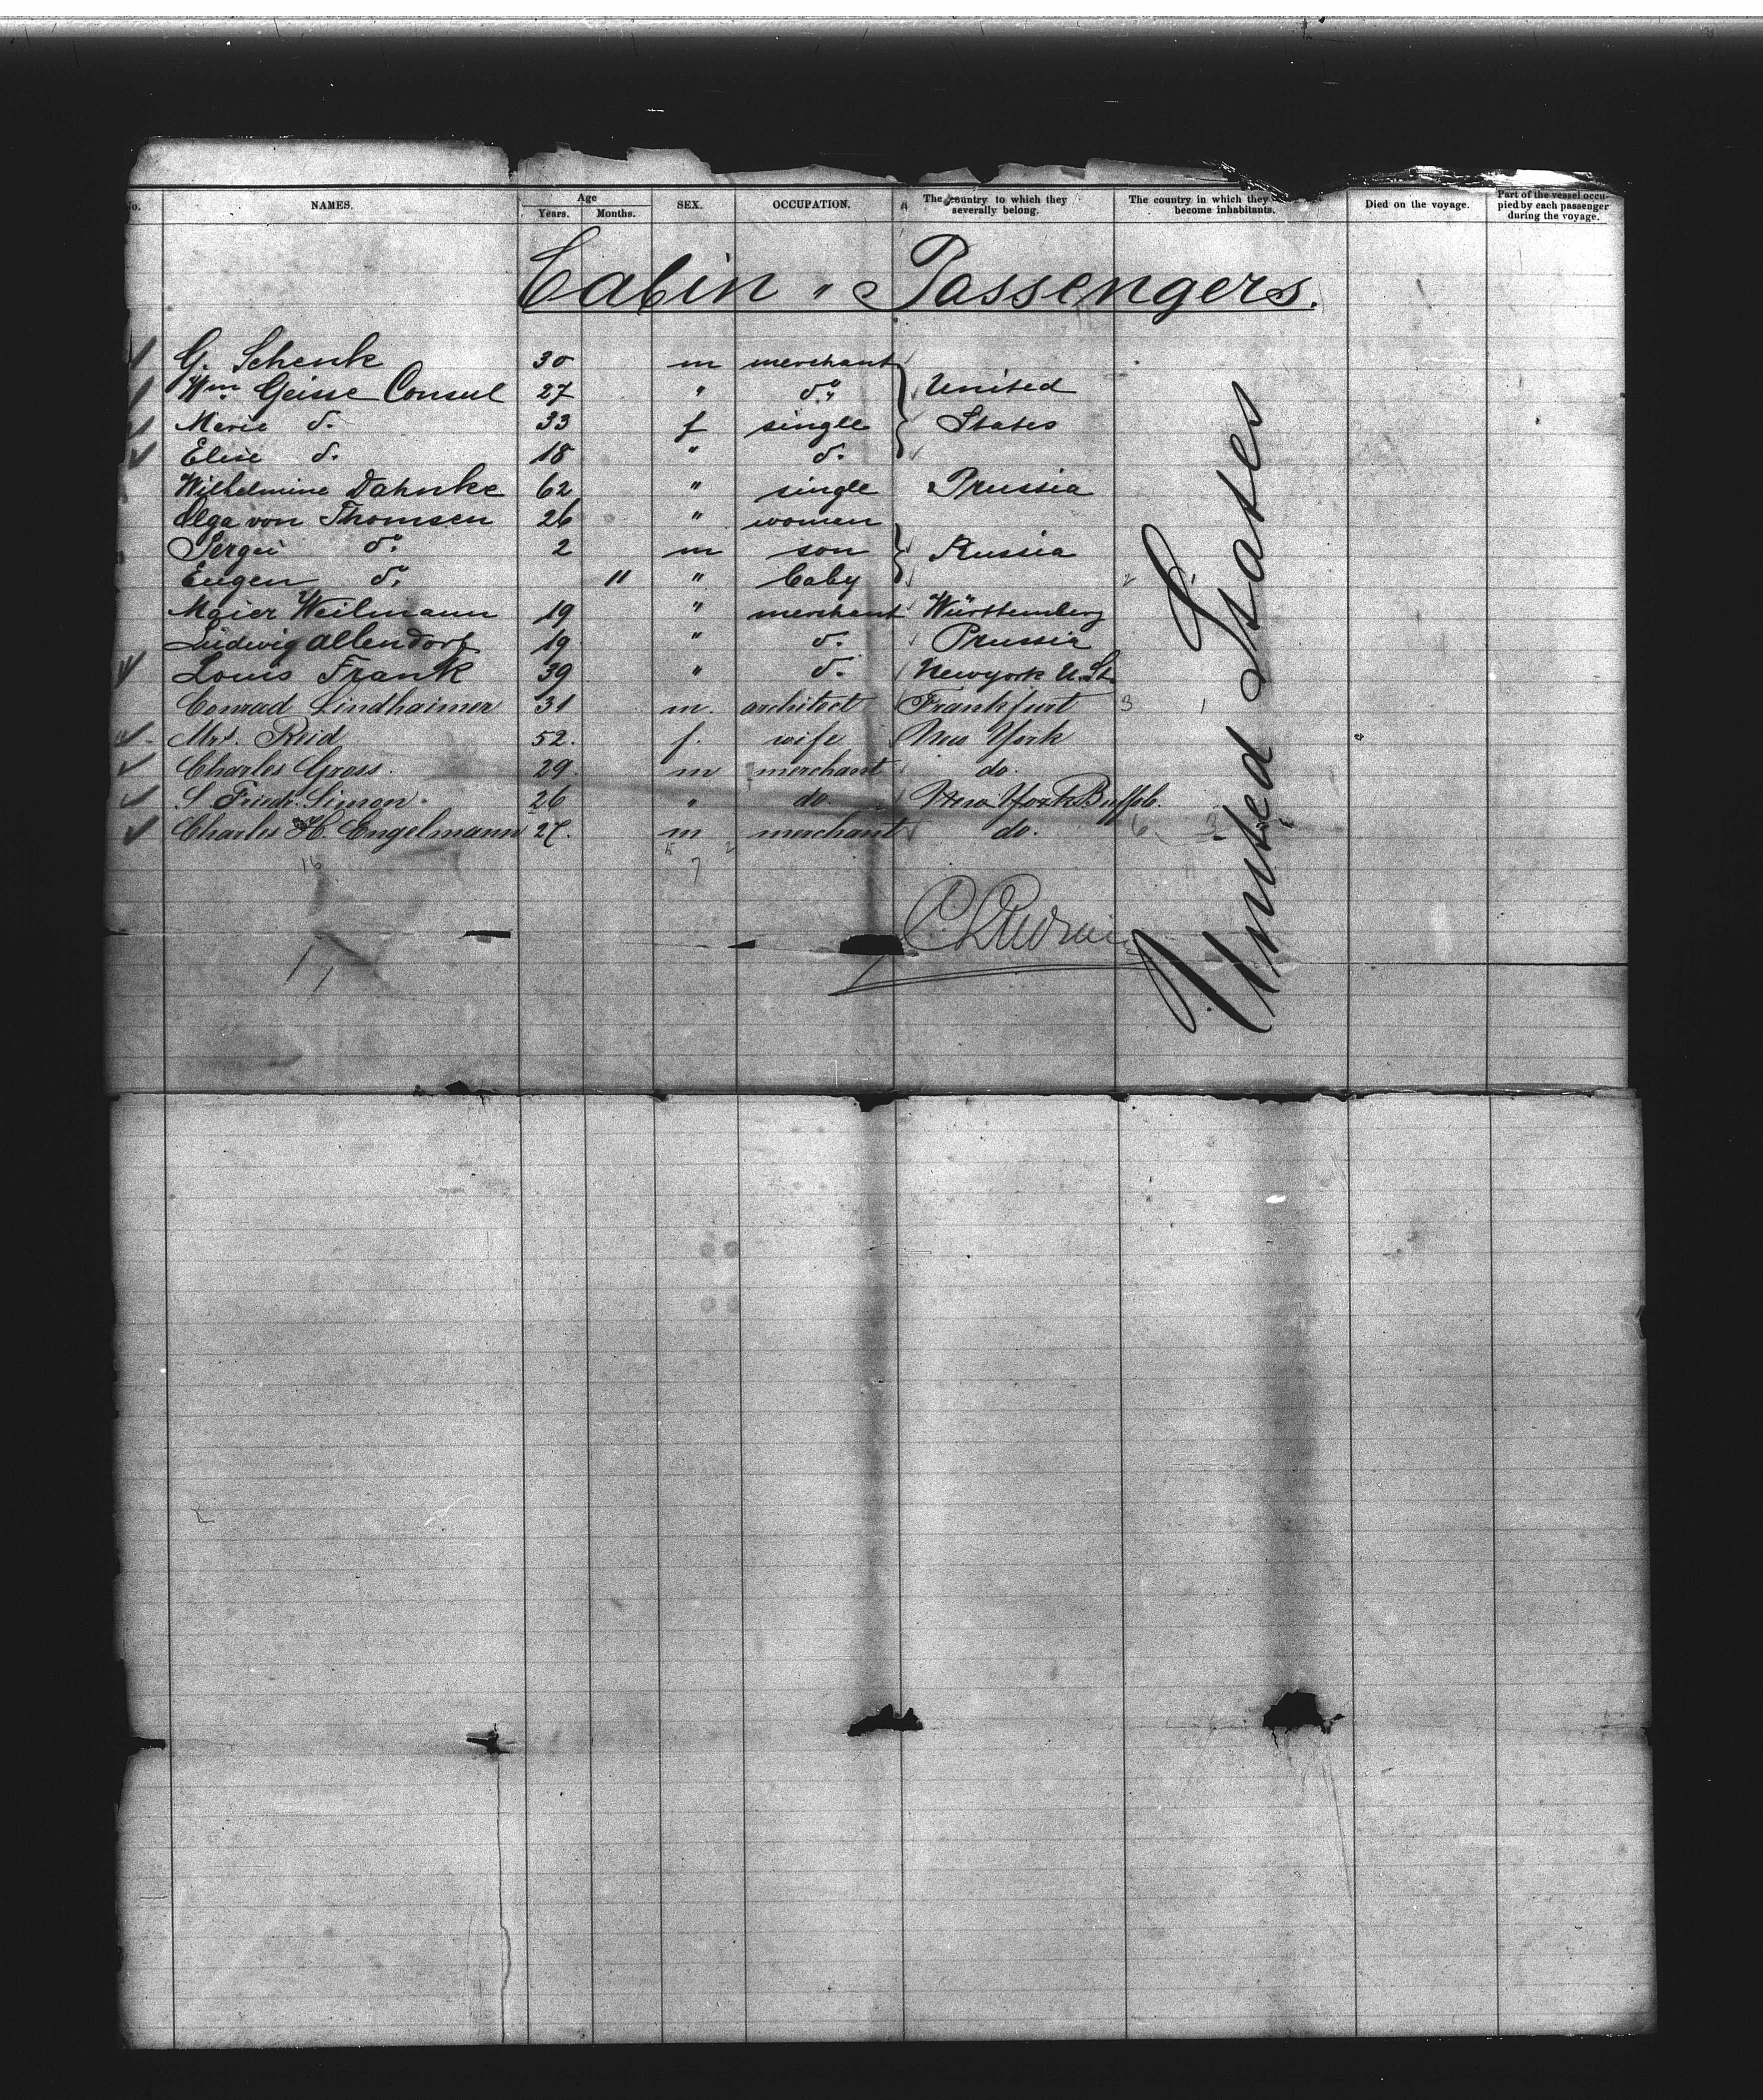 No. NAMES. Age Years. Months. SEX. OCCUPATION. The country to which they severally belong. The country in which they become inhabitants. Died on the voyage. Part of the vessel occupied by each passenger during the voyage.
Cabin " Passengers.
G. Schenk 30 m merchant
Wm. Geisse Consul 27 " do. United
Marie do. 33 f single States
Elise do. 18 " do.
Wilhelmine Dahnke 62 " single Prussia
Olga von Thomsen 26 " women
Sergei do. 2 m son Russia
Eugen do. 11 " baby 2
Maier Weilmann 19 " merchant Württemberg
Ludwig Allendorf 19 " do. Prussia
Louis Frank 39 " do. Newyork U. St.
Conrad Lindhaimer 31 m. architect Frankfurt 3 1
Mrs. Reid 52. f. wife New York
Charles Gross. 29. m merchant do.
S Friedr. Simon. 26 " do. New York Buffalo.
Charles H. Engelmann 27. m merchant do. 6
16 7 2
United States